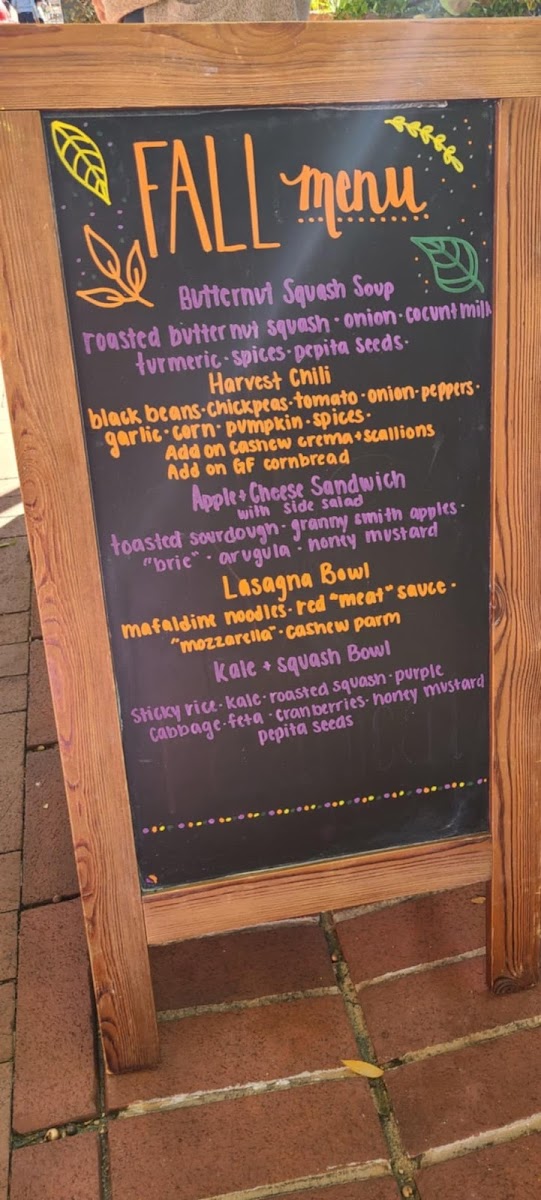 FALL menu
Butternut Squash Soup
roasted butternut squash · onion · cocunt milk
turmeric · spices · pepita seeds ·
Harvest Chili
black beans · chickpeas · tomato · onion · peppers ·
garlic · corn · pumpkin · spices ·
Add on cashew crema + scallions
Add on GF cornbread
Apple + Cheese Sandwich
with side salad
toasted sourdough · granny smith apples ·
"brie" · arugula · honey mustard
Lasagna Bowl
mafaldine noodles · red "meat" sauce ·
"mozzarella" · cashew parm
Kale + squash Bowl
sticky rice · kale · roasted squash · purple
cabbage · feta · cranberries · honey mustard
pepita seeds